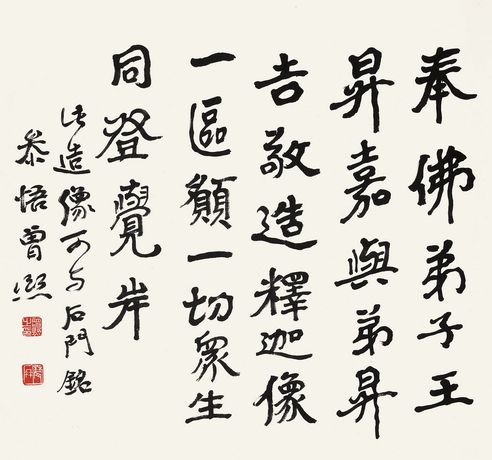 奉佛弟子王
昇嘉與弟昇
吉敬造釋迦像
一區願一切眾生
同登覺岸
此造像可与石門銘
參悟曾熙